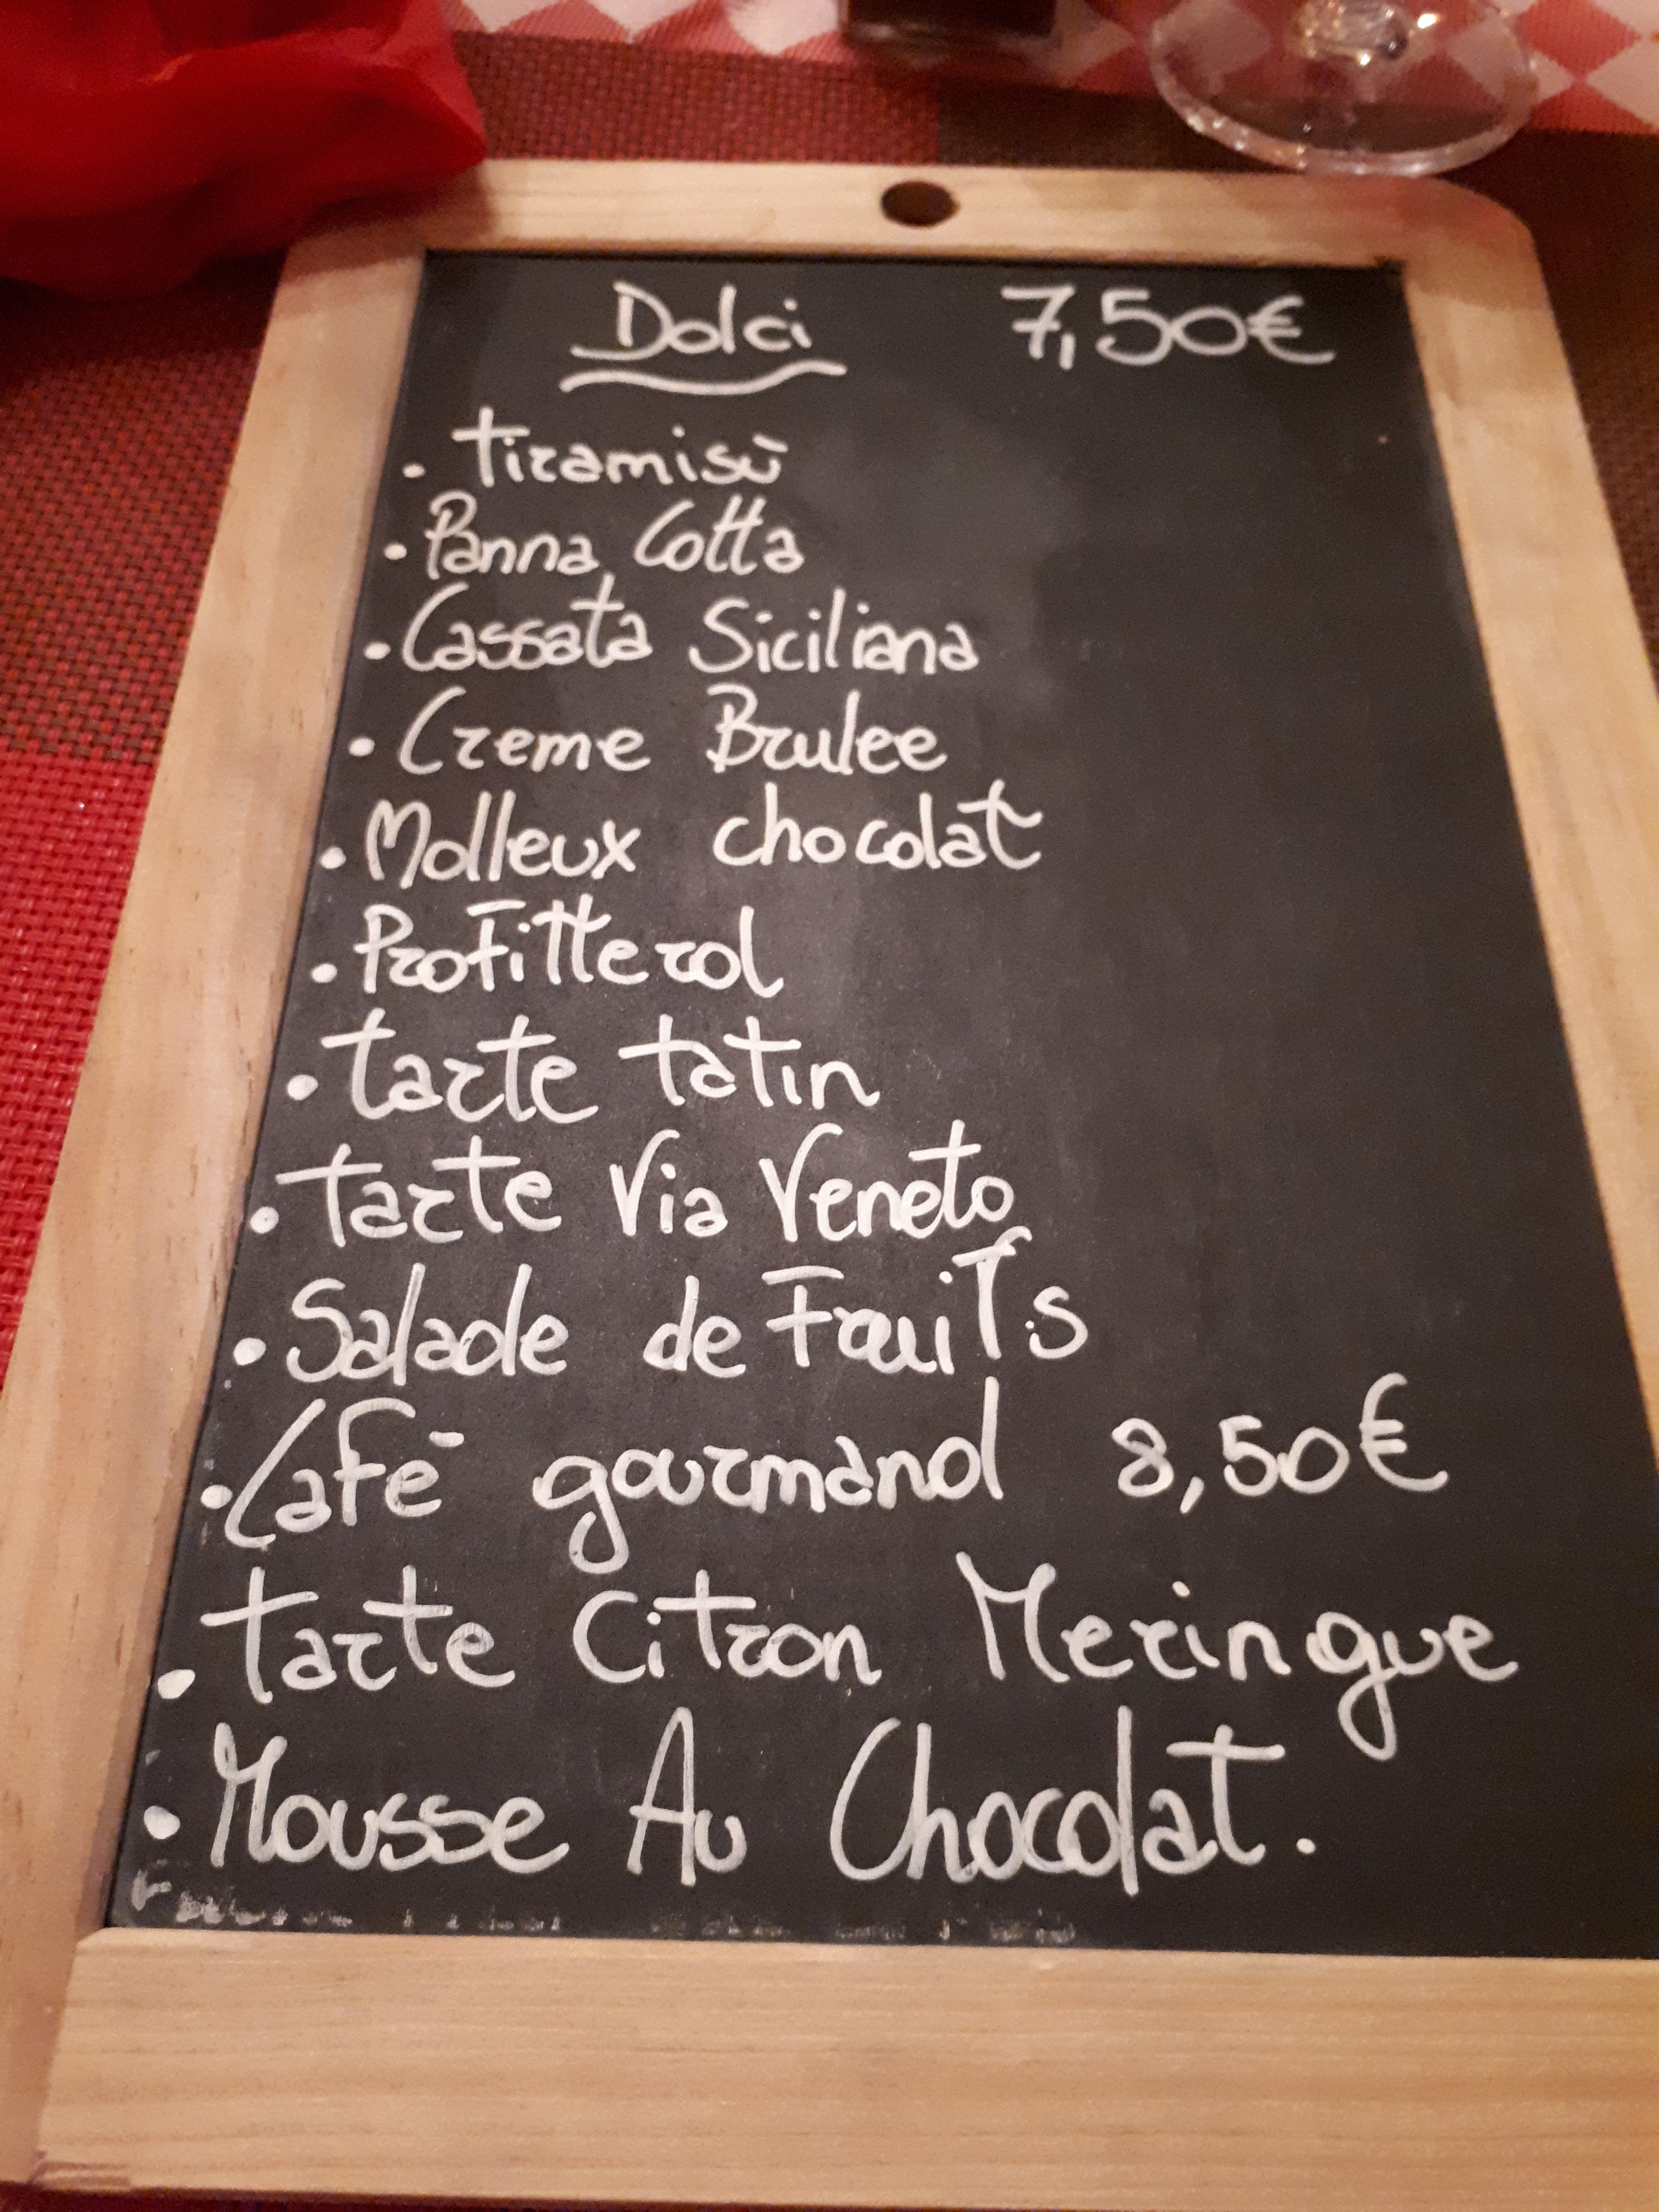 Dolci 7,50€
• Tiramisù
• Panna Cotta
• Cassata Siciliana
• Creme Brulee
• Molleux chocolat
• Profitterol
• Tarte tatin
• Tarte Via Veneto
• Salade de Fruits
• Cafē gourmand 8,50€
• Tarte Citron Meringue
• Mousse Au Chocolat.